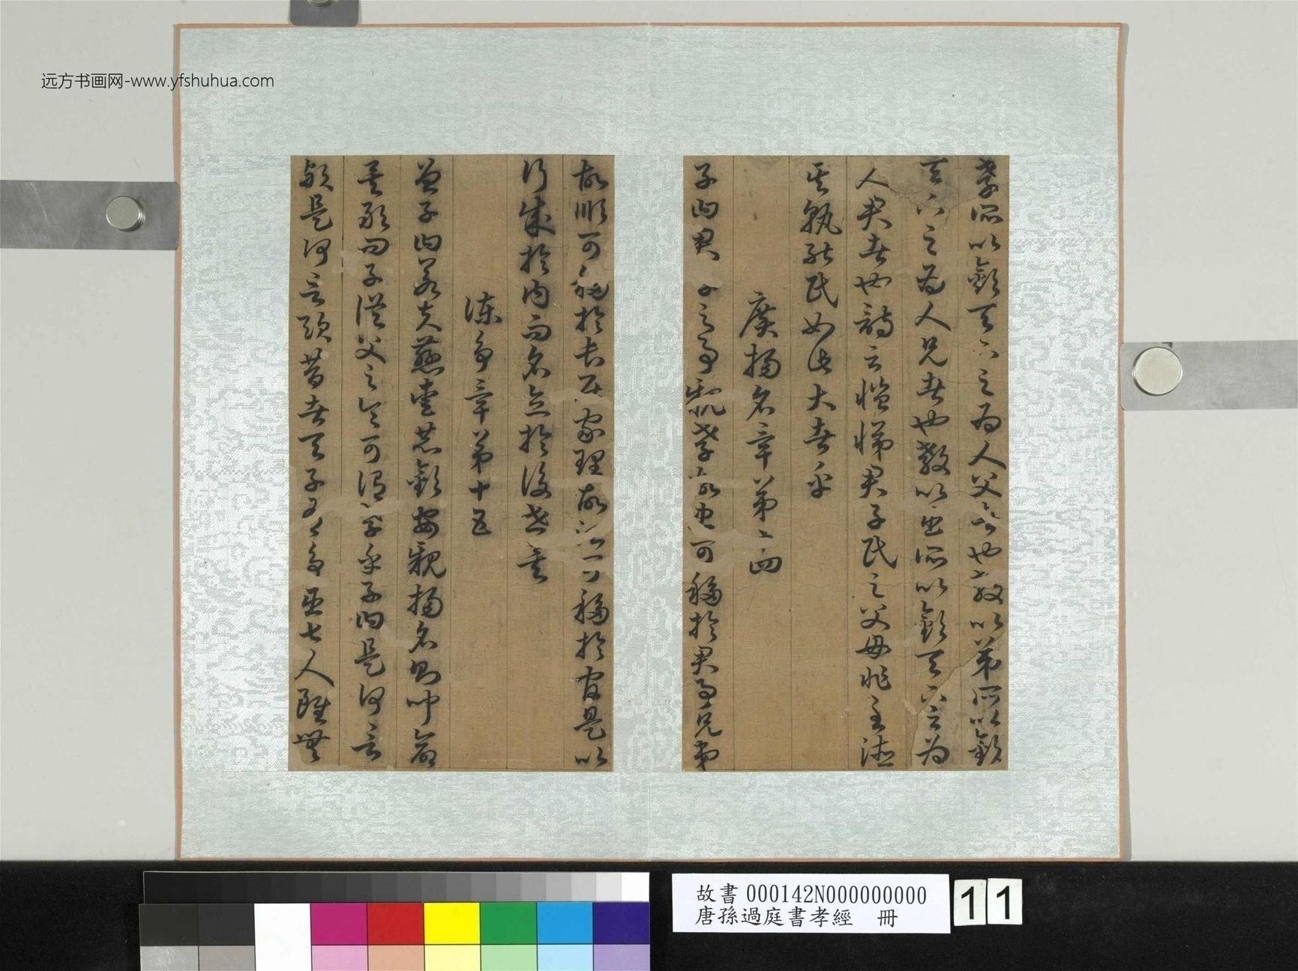 远方书画网-www.yfshuhua.com
孝所以敬天下之為人父者也教以弟所以敬
天下之為人兄者也教以臣所以敬天下之為
人君者也詩云愷悌君子民之父母非至德
其孰能民如此大者乎
廣揚名章第十四
子曰君子之事親孝故忠可移於君事兄弟
故順可移於長居家理故治可移於官是以
行成於内而名立於後世矣
諫爭章第十五
曾子曰若夫慈愛恭敬安親揚名則聞命
矣敢問子從父之令可謂孝乎子曰是何言
歟是何言歟昔者天子有爭臣七人雖無
故書 000142N000000000
唐孫過庭書孝經 冊
11